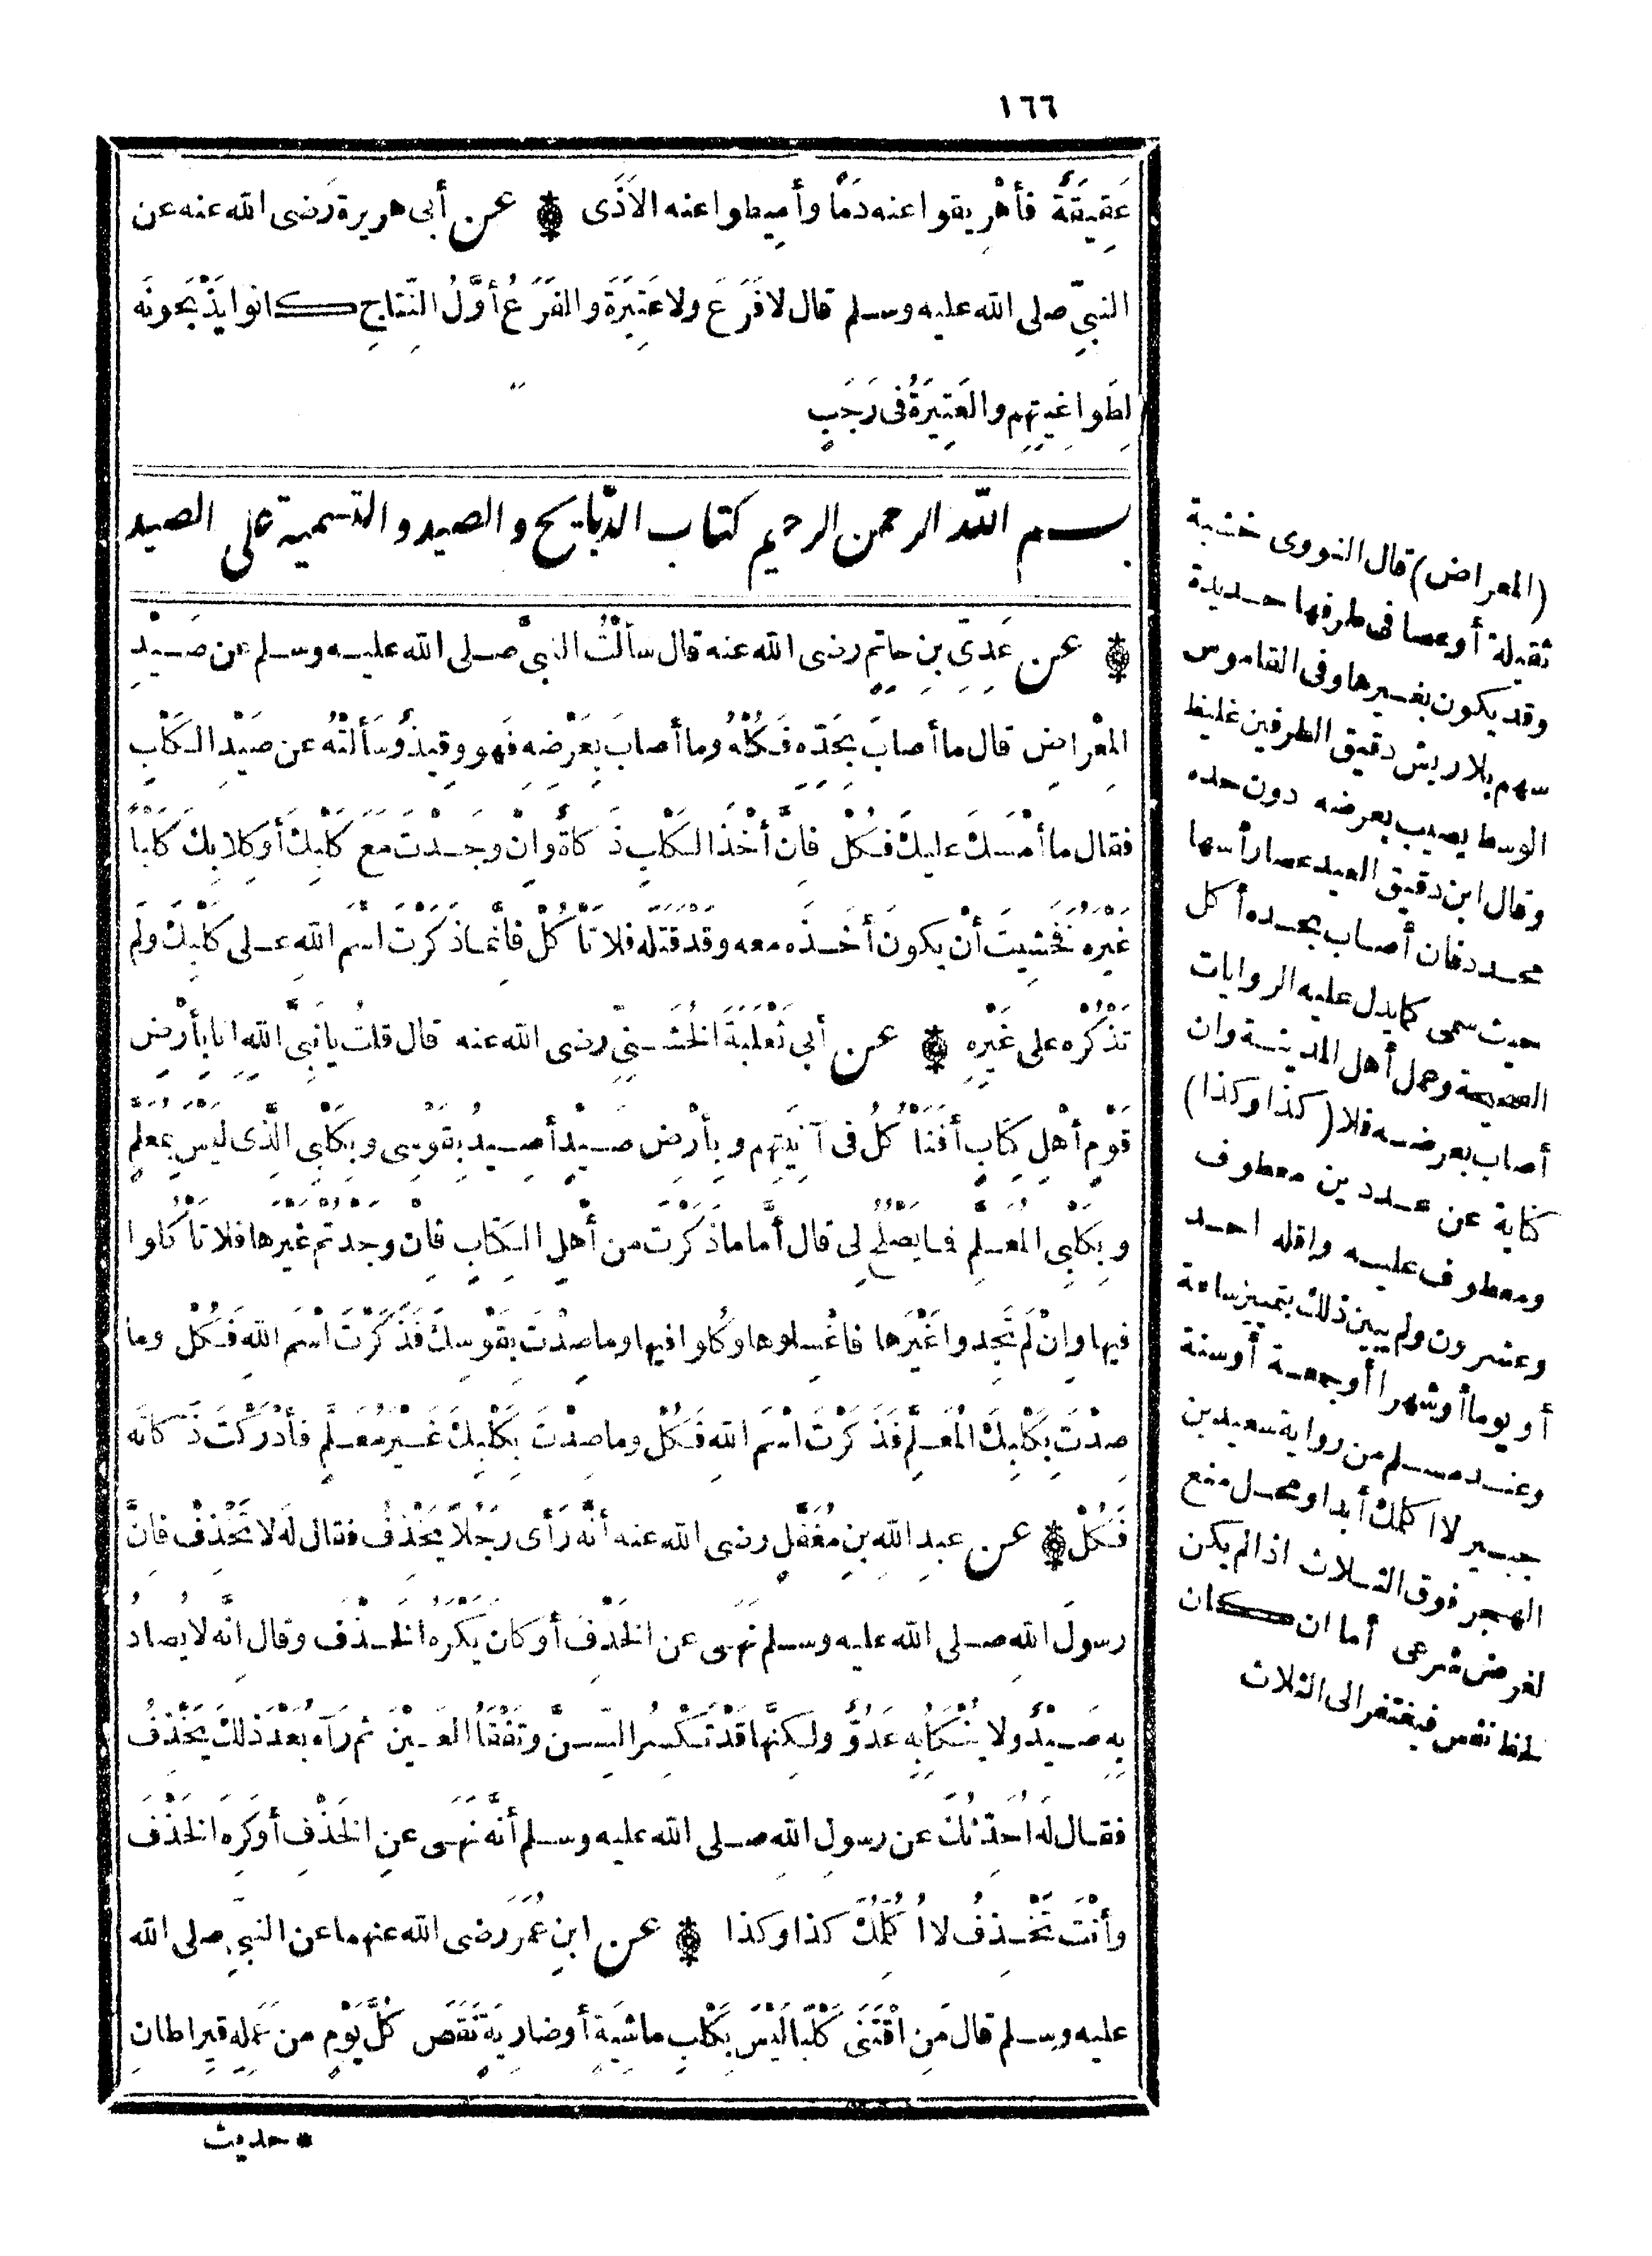 ١٦٦
عَقِيقَةً فأَهْرِيقوا عنه دَمًا وأَمِيطوا عنه الاَذَى * عن أبى هريرة رَضى الله عنه عن
النبىِّ صلى الله عليه وسلم قال لا فَرَعَ ولا عَتِيرَةَ والفَرَعُ أَوَّلُ النِّتاجِ كانوا يَذْبَحونَه
لِطَواغِيتِهِم والعَتِيرَةُ فى رَجَبٍ
بسم الله الرحمن الرحيم كتاب الذبايح والصيد والتسمية على الصيد
* عن عَدِىِّ بنِ حاتِمٍ رضى الله عنه قال سأَلْتُ النبىَّ صلى الله عليه وسلم عن صَيْدِ
المِعْراضِ قال ما أصابَ بِحَدِّهِ فَكُلْهُ وما أصابَ بِعَرْضِهِ فَهو وَقِيذٌ وسَأَلْتُه عن صَيْدِ الكَلْبِ
فقال ما أَمْسَكَ عليكَ فَكُلْ فإنَّ أَخْذَ الكَلْبِ ذَكاةٌ وإنْ وجَدْتَ مَعَ كَلْبِكَ أو كِلابِكَ كَلْبًا
غَيْرَهُ فَخَشِيتَ أنْ يكونَ أَخَذَه معه وقد قتله فلا تَأْكُلْ فإنَّما ذَكَرْتَ اسْمَ اللهِ على كَلْبِكَ ولَم
تَذْكُرْه على غَيْرِهِ * عن أبى ثَعْلَبَةَ الخُشَنِىِّ رضى الله عنه قال قلتُ يا نَبِىَّ اللهِ إنا بِأَرْضِ
قَوْمٍ أهْلِ كِتَابٍ أفَنَأْكُلُ فى آنِيَتِهِم وبِأَرْضِ صَيْدٍ أصِيدُ بِقَوْسِى وبِكَلْبِى الَّذى لَيْسَ بِمُعَلَّمٍ
وبِكَلْبِى المُعَلَّمِ فما يَصْلُحُ لِى قال أَمَّا ما ذَكَرْتَ من أَهْلِ الكِتَابِ فإنْ وجَدْتُم غَيْرَها فلا تَأْكُلوا
فيها وإنْ لَم تَجِدوا غَيْرَها فاغْسِلوها وكُلوا فيها وما صِدْتَ بِقَوْسِكَ فَذَكَرْتَ اسْمَ اللهِ فَكُلْ وما
صِدْتَ بِكَلْبِكَ الْمُعَلَّمِ فَذَكَرْتَ اسْمَ اللهِ فَكُلْ وما صِدْتَ بِكَلْبِكَ غَيْرِ مُعَلَّمٍ فأَدْرَكْتَ ذَكاتَه
فَكُلْ * عن عبدِ اللهِ بنِ مُغَفَّلٍ رضى الله عنه أنَّه رَأَى رَجُلًا يَخْذِفُ فقال لَه لا تَخْذِفْ فإنَّ
رسولَ اللهِ صلى الله عليه وسلم نَهَى عن الخَذْفِ أو كانَ يَكْرَهُ الخَذْفَ وقال إنَّه لا يُصادُ
بِهِ صَيْدٌ ولا يُنْكَأُ بِهِ عَدُوٌّ ولكِنَّها قَدْ تَكْسِرُ السِّنَّ وتَفْقَأُ العَيْنَ ثم رَآه بَعْدَ ذلكَ يَخْذِفُ
فقال لَه أُحَدِّثُكَ عن رسولِ اللهِ صلى الله عليه وسلم أنَّه نَهَى عنِ الخَذْفِ أو كَرِهَ الخَذْفَ
وأَنْتَ تَخْذِفُ لا أُكَلِّمُكَ كذا وكذا * عن ابنِ عُمَرَ رَضى الله عنهما عن النبىِّ صلى الله
عليه وسلم قال مَنِ اقْتَنَى كَلْبًا لَيْسَ بِكَلْبِ ماشِيَةٍ أو ضارِيَةٍ نَقَصَ كُلَّ يَوْمٍ من عَمَلِهِ قِيراطانِ
* حديث
(المعراض) قال النووى خشبة
ثقيلة أو عصا فى طرفها حديدة
وقد يكون بغيرها وفى القاموس
سهم بلا ريش دقيق الطرفين غليظ
الوسط يصيب بعرضه دون حده
وقال ابن دقيق العيد عصا رأسها
محدد فان أصاب بحده أكل
حيث سمى كما يدل عليه الروايات
الصحيحة وعمل أهل المدينة وان
أصاب بعرضه فلا (كذا وكذا)
كناية عن عددين معطوف
ومعطوف عليه واقله احد
وعشرون ولم يبين ذلك بتمييز ساعة
أو يوما أو شهرا أو جمعة أو سنة
وعند مسلم من رواية سعيد بن
جبير لا اكلمك أبدا ومحل منع
الهجر فوق الثلاث اذا لم يكن
لغرض شرعى أما ان كان
لحظ نفس فيغتفر الى الثلاث